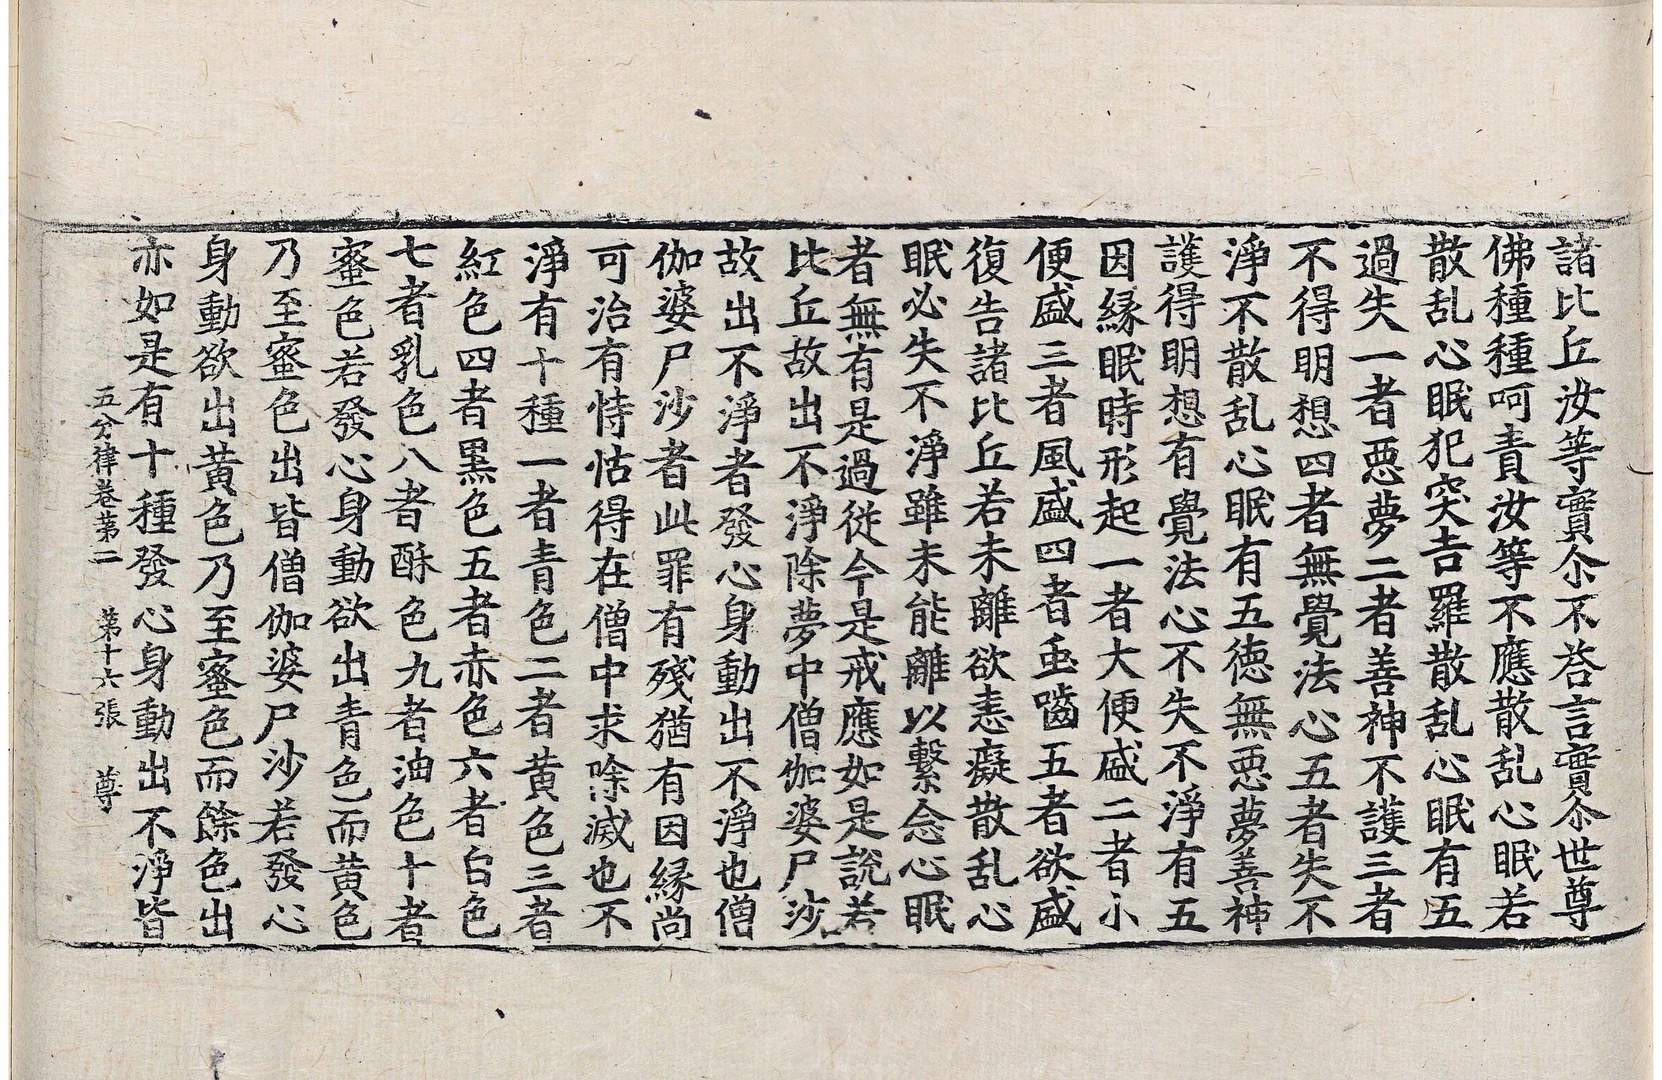 諸比丘汝等實尒不荅言實尒世尊
佛種種呵責汝等不應散乱心眠若
散乱心眠犯突吉羅散乱心眠有五
過失一者惡夢二者善神不護三者
不得明想四者無覺法心五者失不
淨不散乱心眠有五徳無惡夢善神
護得明想有覺法心不失不淨有五
因縁眠時形起一者大便盛二者小
便盛三者風盛四者䖝嚙五者欲盛
復告諸比丘若未離欲恚癡散乱心
眠必失不淨雖未能離以繫念心眠
者無有是過從今是戒應如是說若
比丘故出不淨除夢中僧伽婆尸沙
故出不淨者發心身動出不淨也僧
伽婆尸沙者此罪有殘猶有因縁尚
可治有恃怙得在僧中求除滅也不
淨有十種一者青色二者黄色三者
紅色四者黒色五者赤色六者白色
七者乳色八者酥色九者油色十者
蜜色若發心身動欲出青色而黄色
乃至蜜色出皆僧伽婆尸沙若發心
身動欲出黄色乃至蜜色而餘色出
亦如是有十種發心身動出不淨皆
五分律卷苐二　苐十六張　尊